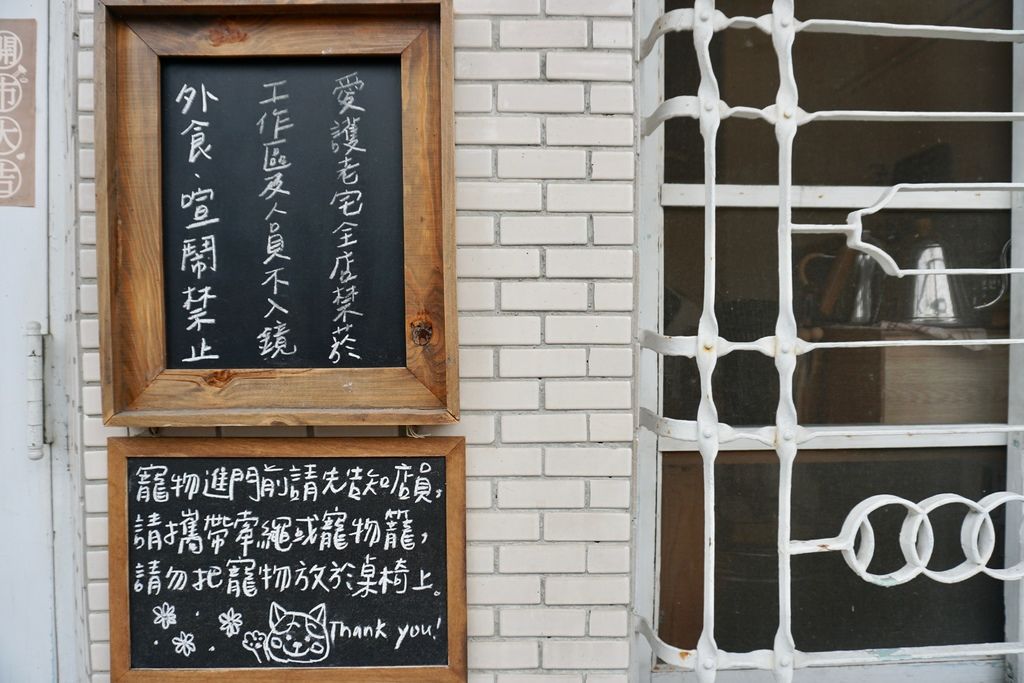 愛護老宅全店禁菸
工作區及人員不入鏡
外食、喧鬧禁止
寵物進門前請先告知店員,
請攜帶牽繩或寵物籠,
請勿把寵物放於桌椅上。
Thank you!
開市大吉